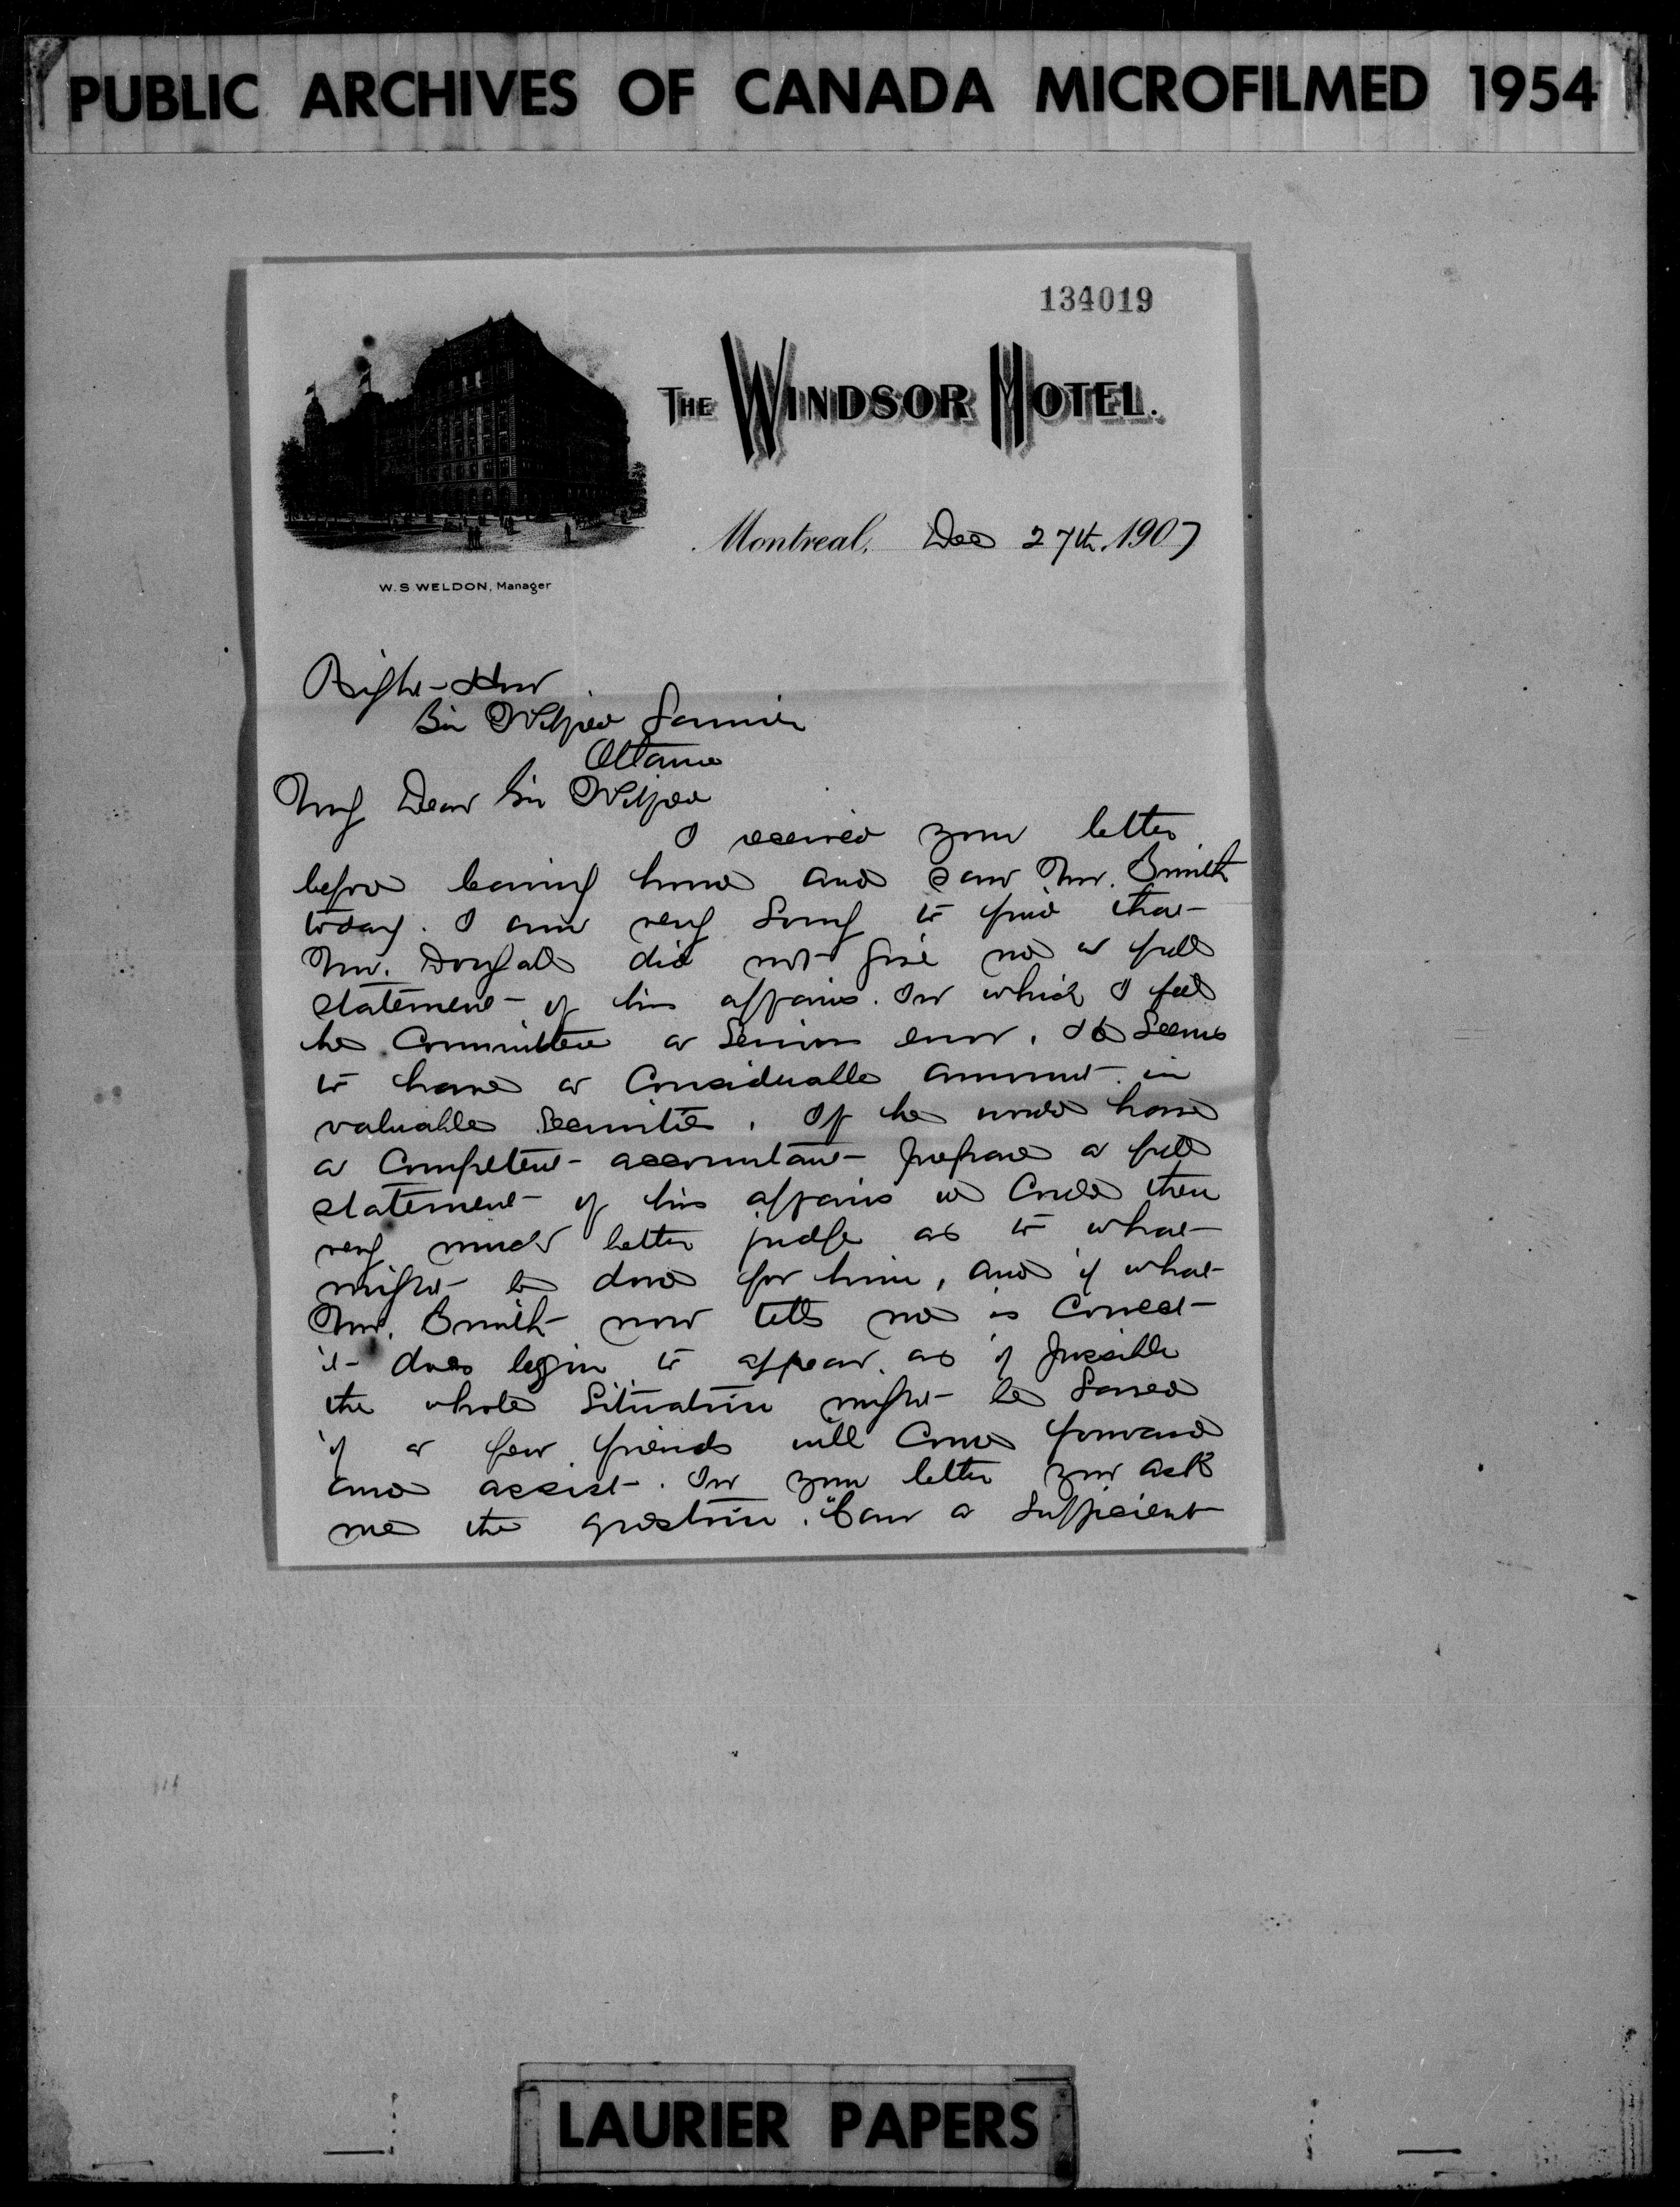 PUBLIC ARCHIVES OF CANADA MICROFILMED 1954
134019
THE WINDSOR HOTEL.
Montreal, Dec 27th 1907
W. S. WELDON, Manager
Right Hon
Sir Wilfrid Laurier
Ottawa
My Dear Sir Wilfrid
I received your letter
before leaving home and saw Mr. Smith
today. I am very sorry to find that
Mr. Dougall did not give me a full
statement of his affairs. In which I feel
he committed a serious error. He seems
to have a considerable amount in
valuable securities. If he would have
a competent accountant prepare a full
statement of his affairs we could then
very much better judge as to what
might be done for him, and if what
Mr. Smith now tells me is correct
it does begin to appear as if possible
the whole situation might be saved
if a few friends will come forward
and assist. In your letter you ask
me the question. "Can a sufficient
LAURIER PAPERS